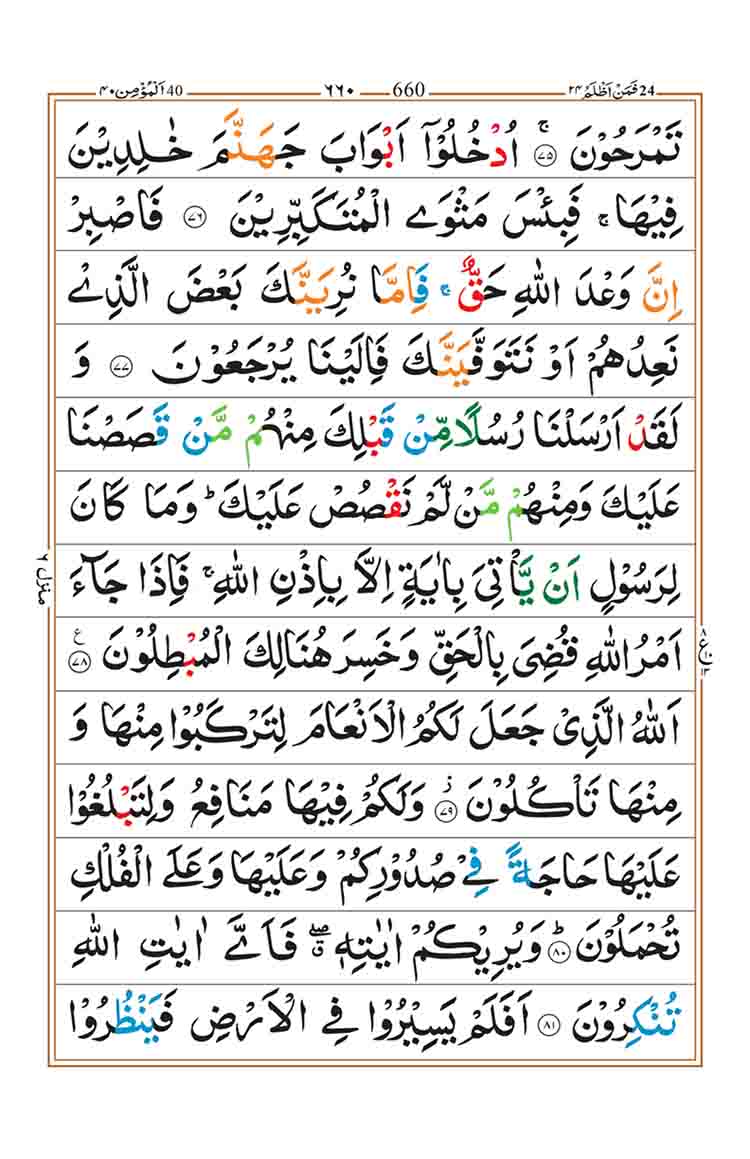 24 فَمَنْ اَظْلَمُ ۲۴ 660 ۶۶۰ 40 اَلْمُؤْمِن ۴۰
تَمْرَحُوْنَ ﴿۷۵﴾ۚ اُدْخُلُوْۤا اَبْوَابَ جَهَنَّمَ خٰلِدِيْنَ
فِيْهَا ۚ فَبِئْسَ مَثْوَى الْمُتَكَبِّرِيْنَ ﴿۷۶﴾ فَاصْبِرْ
اِنَّ وَعْدَ اللّٰهِ حَقٌّ ۚ فَاِمَّا نُرِيَنَّكَ بَعْضَ الَّذِيْ
نَعِدُهُمْ اَوْ نَتَوَفَّيَنَّكَ فَاِلَيْنَا يُرْجَعُوْنَ ﴿۷۷﴾ وَ
لَقَدْ اَرْسَلْنَا رُسُلًا مِّنْ قَبْلِكَ مِنْهُمْ مَّنْ قَصَصْنَا
عَلَيْكَ وَمِنْهُمْ مَّنْ لَّمْ نَقْصُصْ عَلَيْكَ ؕ وَمَا كَانَ
لِرَسُوْلٍ اَنْ يَّاْتِيَ بِاٰيَةٍ اِلَّا بِاِذْنِ اللّٰهِ ۚ فَاِذَا جَآءَ
اَمْرُ اللّٰهِ قُضِيَ بِالْحَقِّ وَخَسِرَ هُنَالِكَ الْمُبْطِلُوْنَ ﴿۷۸﴾ ع
اَللّٰهُ الَّذِيْ جَعَلَ لَكُمُ الْاَنْعَامَ لِتَرْكَبُوْا مِنْهَا وَ
مِنْهَا تَاْكُلُوْنَ ﴿۷۹﴾ؗ وَلَكُمْ فِيْهَا مَنَافِعُ وَلِتَبْلُغُوْا
عَلَيْهَا حَاجَةً فِيْ صُدُوْرِكُمْ وَعَلَيْهَا وَعَلَى الْفُلْكِ
تُحْمَلُوْنَ ﴿۸۰﴾ؕ وَيُرِيْكُمْ اٰيٰتِهٖ ۖۗ فَاَيَّ اٰيٰتِ اللّٰهِ
تُنْكِرُوْنَ ﴿۸۱﴾ اَفَلَمْ يَسِيْرُوْا فِي الْاَرْضِ فَيَنْظُرُوْا
منزل ۶